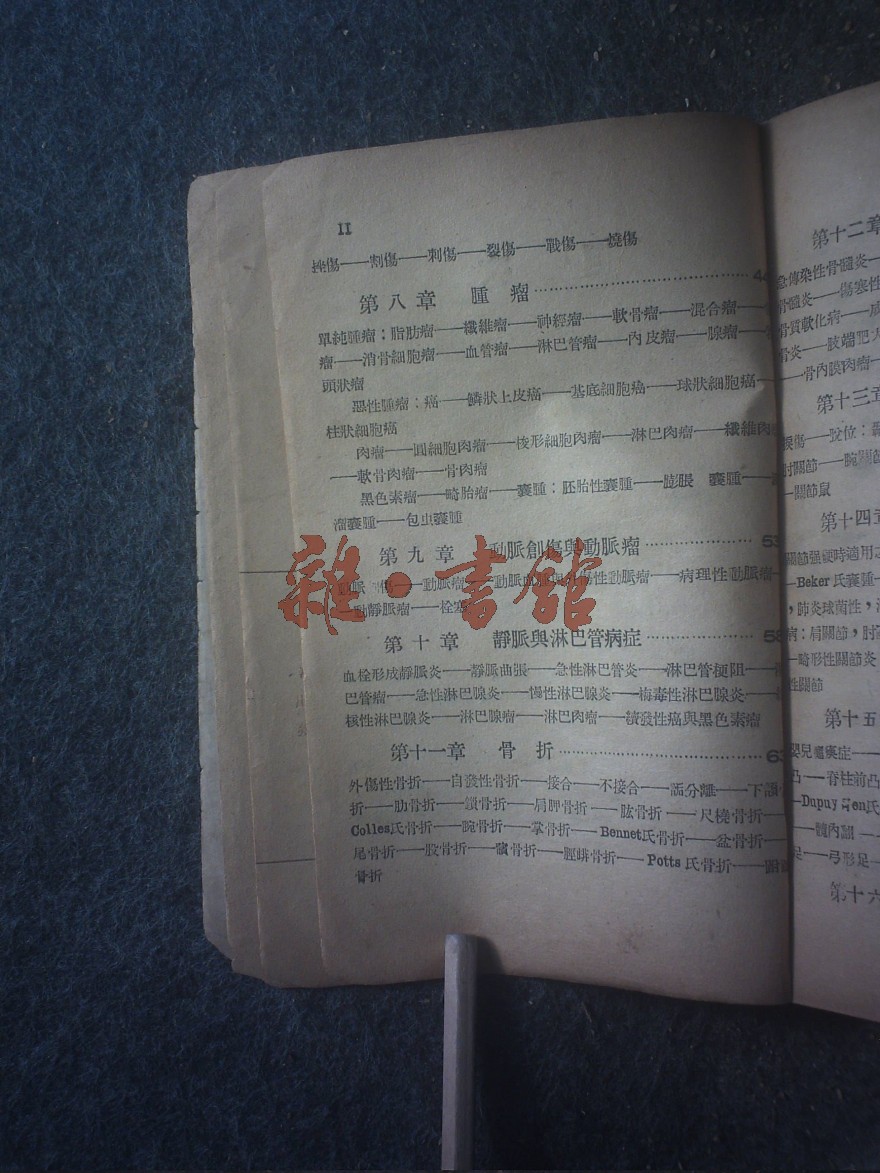 II
挫傷——割傷——刺傷——裂傷——戰傷——燒傷
第八章 腫瘤
單純腫瘤：脂肪瘤——纖維瘤——神經瘤——軟骨瘤——混合瘤
瘤——消骨細胞瘤——血管瘤——淋巴管瘤——內皮瘤——腺瘤
頭狀瘤
惡性腫瘤：癌——鱗狀上皮癌——基底細胞癌——球狀細胞癌
柱狀細胞癌
肉瘤——圓細胞肉瘤——棱形細胞肉瘤——淋巴肉瘤——纖維肉
——軟骨肉瘤——骨肉瘤
黑色素瘤——畸胎瘤——囊腫：胚胎性囊腫——膨脹 囊腫
溜囊腫——包虫囊腫
第九章 動脈創傷與動脈瘤 53
動脈瘤 性動脈瘤——病理性動脈瘤
動靜脈瘤——栓塞
雜·書館
第十章 靜脈與淋巴管病症 58
血栓形成靜脈炎——靜脈曲張——急性淋巴管炎——淋巴管梗阻
巴管瘤——急性淋巴腺炎——慢性淋巴腺炎——梅毒性淋巴腺炎
核性淋巴腺炎——淋巴腺瘤——淋巴肉瘤——續發性癌與黑色素瘤
第十一章 骨折 63
外傷性骨折——自發性骨折——接合——不接合——骺分離——下
折——肋骨折——鎖骨折——肩胛骨折——肱骨折——尺橈骨折
Colles氏骨折——腕骨折——掌骨折——Bennet氏骨折——盆骨折
尾骨折——股骨折——髕骨折——脛腓骨折——Potts 氏骨折
骨折
第十二章
急傳染性骨髓炎
骨髓炎——傷寒性
骨質軟化病
骨炎——肢端肥大
骨內膜肉瘤
第十三章
扭傷——脫位：
肘關節——腕關節
關節鼠
第十四章
關節强硬時適用之
Beker 氏囊腫
，肺炎球菌性，
病：肩關節，肘
畸形性關節炎
性關節
第十五
嬰兒癱瘓症
凸——脊柱前凸
髖內翻
足——弓形足
第十六